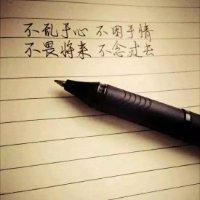 不乱于心 不困于情
不畏将来 不念过去